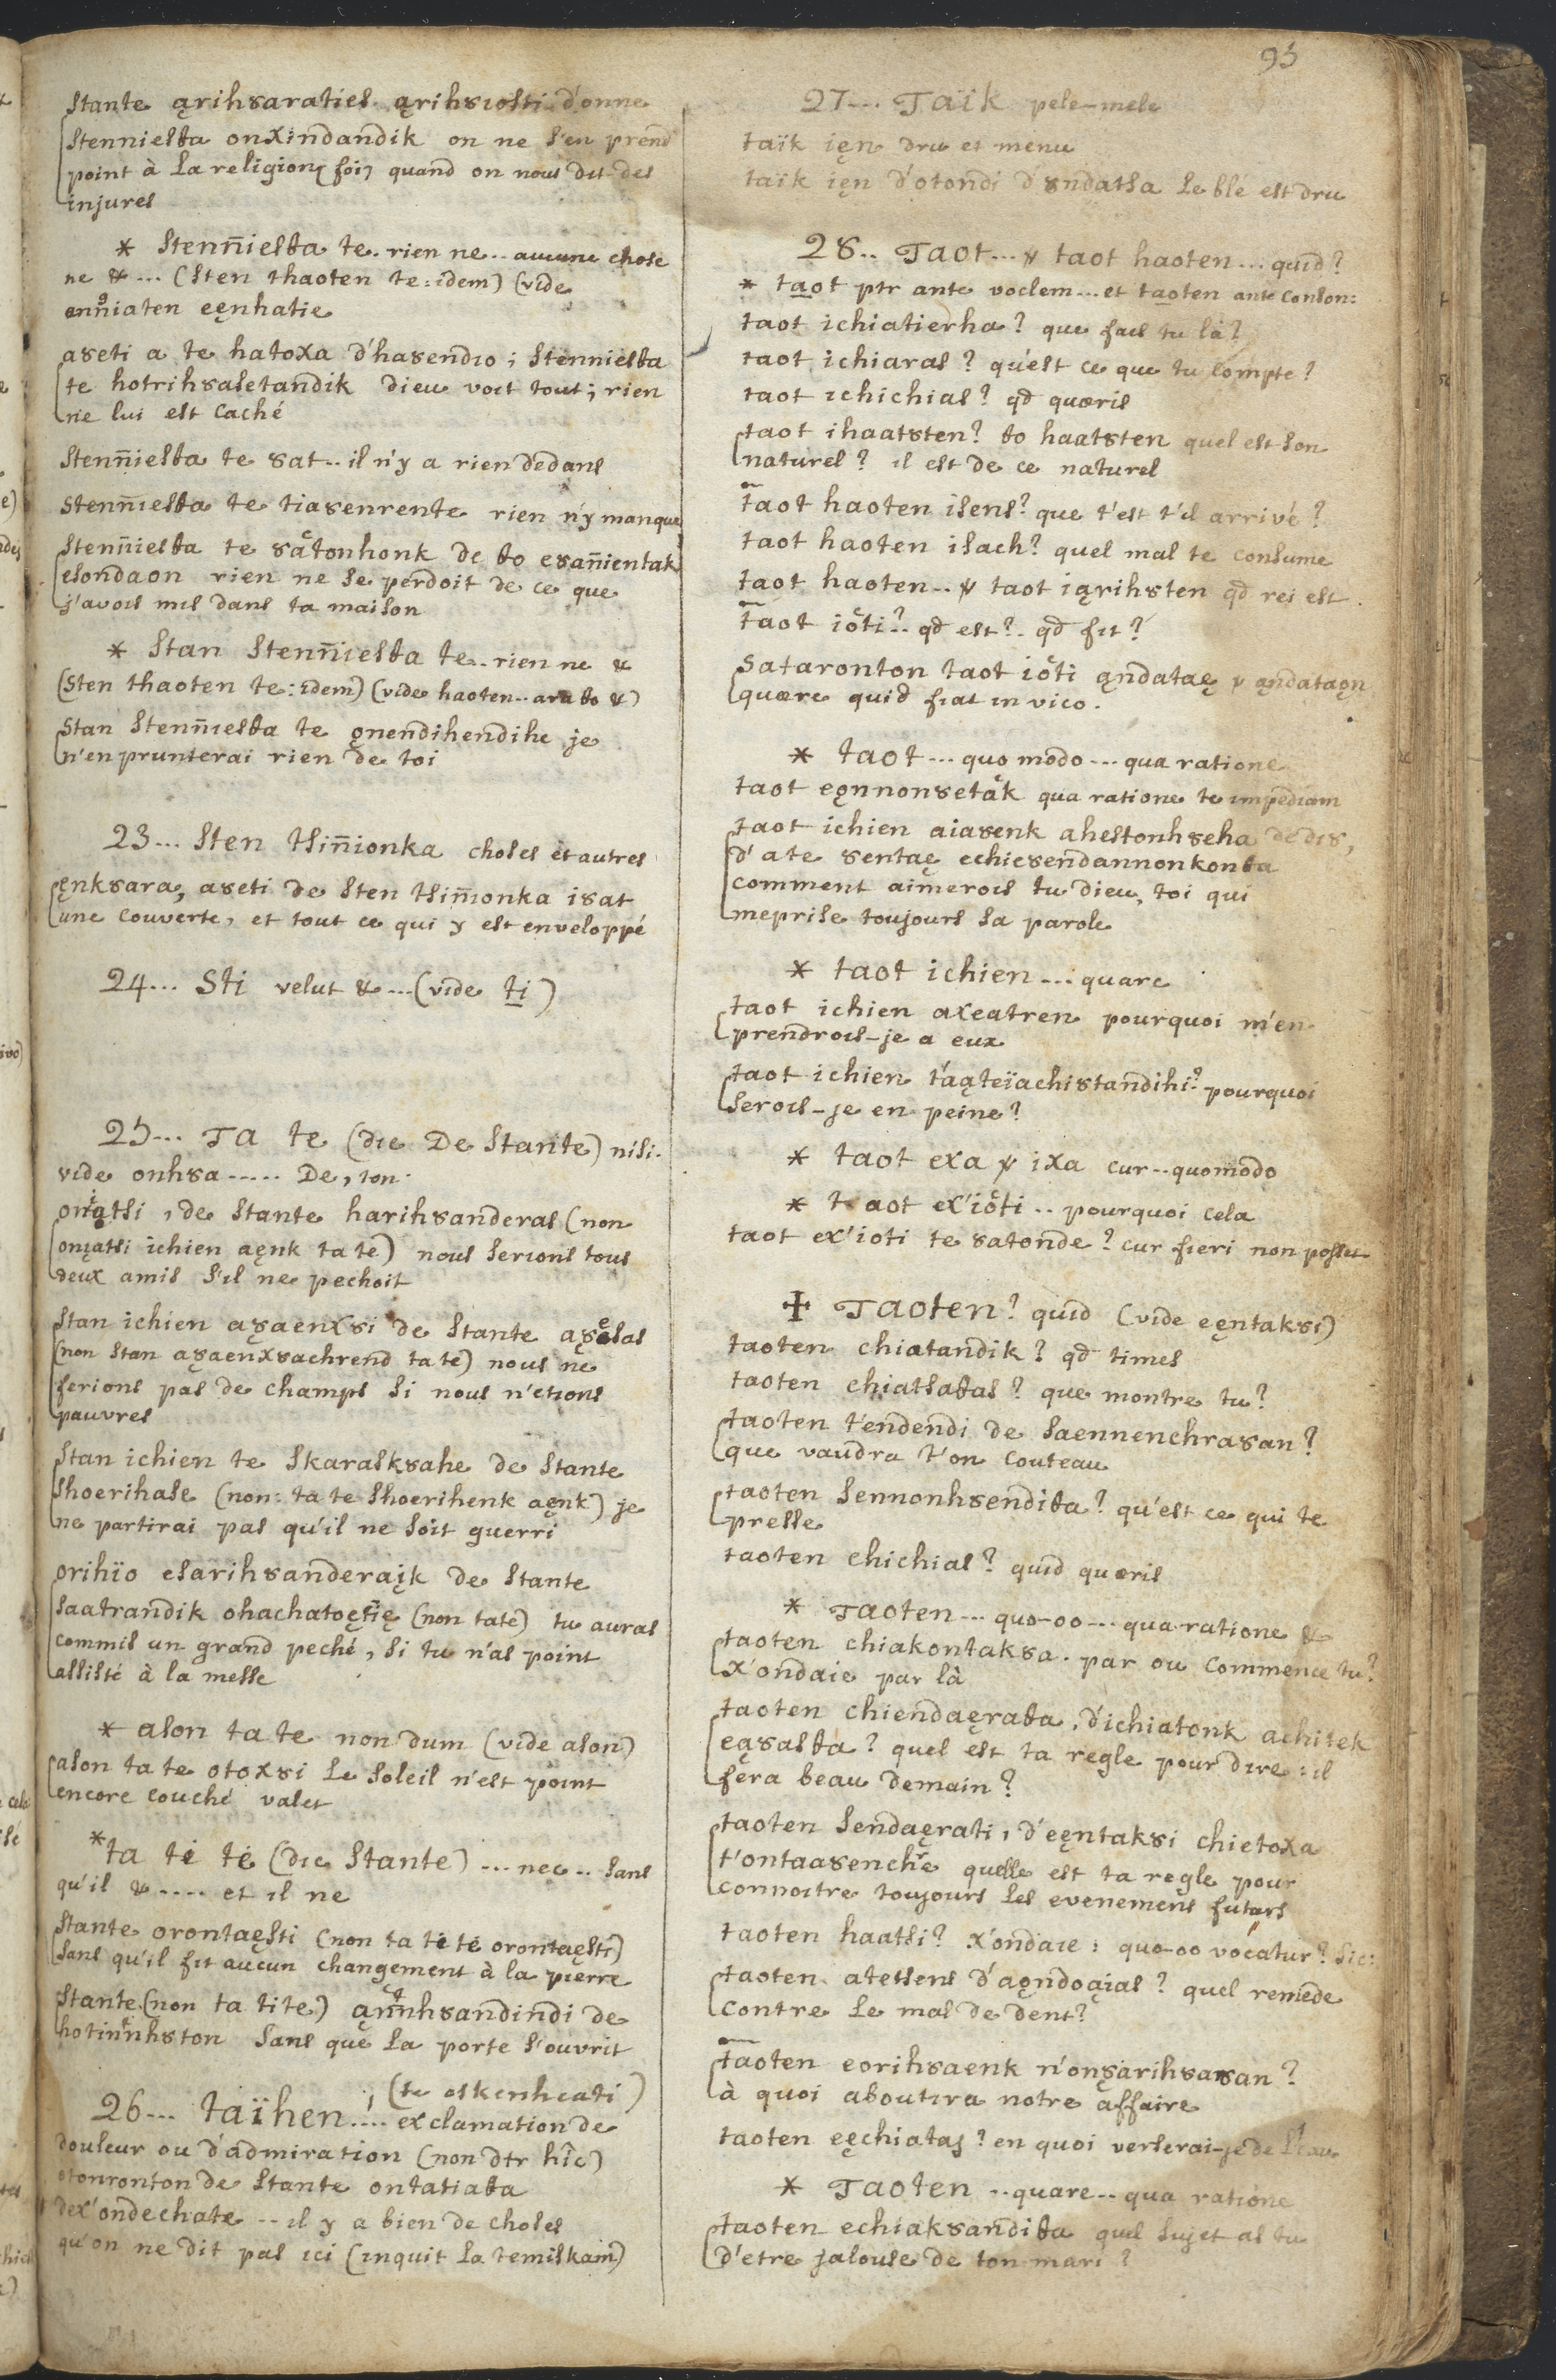 95
Stante ąrih8araties ąrih8iosti d'onne
Stenniesθa onxindandik on ne s'en prend
point à la religion, foi, quand on nous dit des
injures
* Stenn̄iesθa te.. rien ne... aucune chose
ne &... (sten thaoten te: idem) (vide
anniaten eęnhatie
a8eti a te hatoxa d'ha8endio; stenniesθa
te hotrih8a8etandik dieu voit tout; rien
ne lui est caché
Stenn̄iesθa te 8at.. il n'y a rien dedans
Stenn̄iesθa te tia8enrente rien n'y manque
Stenn̄iesθa te 8atonhonk de θo esan̄ientak
esondaon rien ne se perdoit de ce que
j'avois mis dans ta maison
* Stan Stenn̄iesθa te.. rien ne &
(Sten thaoten te: idem) (vide haoten.. ara θo &)
Stan Stenn̄iesθa te ǫnendihendihe je
n'enprunterai rien de toi
23... Sten tsin̄ionka choses et autres
ęnk8ara, a8eti de sten tsin̄ionka i8at
une couverte, et tout ce qui y est enveloppé
24... Sti velut &... (vide ti)
25... Ta te (dic De Stante) nisi.
vide onh8a..... De, ton
onątsi, de stante harih8anderas (non
onįatsi ichien aęnk ta te) nous serions tous
deux amis s'il ne pechoit
Stan ichien a8aenx8i de stante a8esas
(non stan a8aenx8achrend ta te) nous ne
ferions pas de champs si nous n'etions
pauvres
Stan ichien te skarask8ahe de stante
shoerihase (non: ta te shoerihenk aęnk) je
ne partirai pas qu'il ne soit guerri
orihïo esarih8anderaįk de stante
saatrandik ohachatoętīę (non tate) tu auras
commis un grand peché, si tu n'as point
assisté à la messe
* ason ta te non dum (vide ason)
ason ta te otox8i le soleil n'est point
encore couché valet
* ta te te (dic Stante)... nec.. sans
qu'il &.... et il ne
Stante orontaęsti (non ta te te orontaęsti)
sans qu'il fit aucun changement à la pierre
Stante (non ta ti te) ąnnh8andindi de
hotinnh8ton sans que la porte s'ouvrit
26... taïhen! (te oskenheati)
.... exclamation de
douleur ou d'admiration (non dtr hîc)
otonronton de stante ontatiaθa
dex'ondechate.. il y a bien de choses
qu'on ne dit pas ici (inquit la temiskam)
27... Taïk pele-mele
taïk ięn dru et menu
taïk ięn d'otondi d'8ndatsa le blé est dru
28.. Taot... ꝟ taot haoten... quid?
* taot ptr ante voclem... et taoten ante conson:
taot ichiatierha? que fais tu là?
taot ichiaras? qu'est ce que tu compte?
taot ichichias? qd quæris
taot ihaat8ten? θo haat8ten quel est son
naturel? il est de ce naturel
taot haoten isens? que t'est t'il arrivé?
taot haoten isach? quel mal te consume
taot haoten.. ꝟ taot iąrih8ten qd rei est.
taot ioti?.. qd est?.. qd fit?
Sataronton taot ioti ąndataę ꝟ ąndataǫn
quære quid fiat in vico.
* taot... quo modo... qua ratione
taot eǫnnon8etak qua ratione te impediam
taot ichien aia8enk ahestonh8eha de dis,
d'ate 8entaę echie8endannonkonθa
comment aimerois tu dieu, toi qui
meprise toujours sa parole
* taot ichien... quare
taot ichien axeatren pourquoi m'en
prendrois-je a eux
taot ichien t'aąteïachi8tandihi? pourquoi
serois-je en peine?
* taot exa ꝟ ixa cur.. quomodo
* taot ex'ioti.. pourquoi cela
taot ex'ioti te 8atonde? cur fieri non posset
✠ Taoten? quid (vide eęntak8i)
taoten chiatandik? qd times
taoten chiatsaθas? que montre tu?
taoten t'endendi de saennenchra8an?
que vaudra t'on couteau
taoten sennonh8endiθa? qu'est ce qui te
presse
taoten chichias? quid quæris
* Taoten... quo-oo... qua ratione &
taoten chiakontak8a. par ou commence tu?
x'ondaie par là
taoten chiendaęraθa, d'ichiatonk achitek
eą8asθa? quel est ta regle pour dire: il
fera beau demain?
taoten sendaęrati, d'eęntak8i chietoxa
t'ontaa8enchre quelle est ta regle pour
connoitre toujours les evenemens futurs
taoten haatsi? x'ondaie: quo-oo vocatur? sic:
taoten atetsens d'aǫndoąįas? quel remede
contre le mal de dent?
taoten eorih8aenk n'on8arih8a8an?
à quoi aboutira notre affaire
taoten eęchiatas? en quoi verserai-je de l'eau
* Taoten.. quare.. qua ratione
taoten echiak8andiθa quel sujet as tu
d'etre jalouse de ton mari?